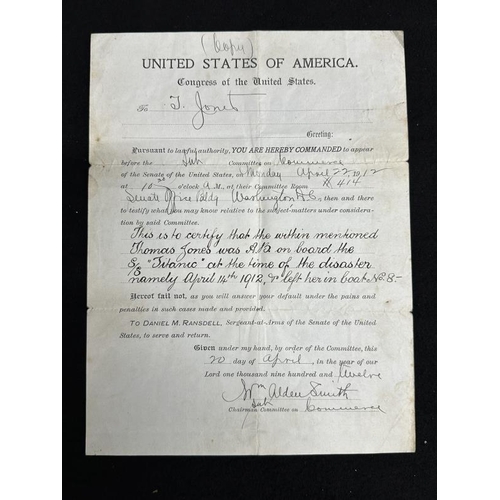 (Copy)
UNITED STATES OF AMERICA.
Congress of the United States.
To T. Jones
Greeting:
Pursuant to lawful authority, YOU ARE HEREBY COMMANDED to appear
before the Sub Committee on Commerce
of the Senate of the United States, on April 22 1912
at 10 o'clock A.M., at their Committee Room 414
Senate Office Bldg Washington D.C., then and there
to testify what you may know relative to the subject-matters under considera-
tion by said Committee.
This is to certify that the within mentioned
Thomas Jones was A.B. on board the
S/S "Titanic" at the time of the disaster
namely April 14th 1912, & left her in boat No. 8.-
Hereof fail not, as you will answer your default under the pains and
penalties in such cases made and provided.
To DANIEL M. RANSDELL, Sergeant-at-Arms of the Senate of the United
States, to serve and return.
Given under my hand, by order of the Committee, this
20 day of April, in the year of our
Lord one thousand nine hundred and twelve
Wm Alden Smith
Chairman Sub Committee on Commerce